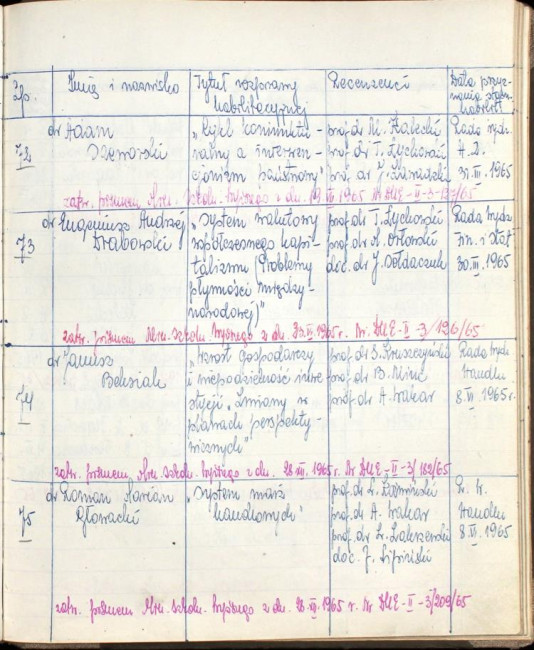 Lp. Imię i nazwisko Tytuł rozprawy habilitacyjnej Recenzenci Data przyznania stopnia habilit.
72
dr Adam
„Cykl koniunktu-
ralny a interwen-
cjonizm państwowy"
prof. dr M.
prof. dr T. Łychowski
prof. dr J.
Rada Wydz.
31.III.1965
zatw. pismem Min. Szkoln. Wyższego z dn. 1965 Nr DUE-II-3-127/65
73
dr Eugeniusz Andrzej
Drabowski
„System walutowy
współczesnego kapi-
talizmu (Problemy
płynności między-
narodowej)"
prof. dr T. Łychowski
prof. dr M. Orłowski
doc. dr J. Sołdaczuk
Rada Wydz.
Fin. i Stat
30.III.1965
zatw. pismem Min. Szkoln. Wyższego z dn. 1965 r. Nr DUE-II-3/196/65
74
dr Janusz
Beksiak
„Wzrost gospodarczy
i niepodzielność inwe
stycji". Zmiany w
planach perspekty-
wicznych"
prof. dr S. Kruszczyński
prof. dr B. Minc
prof. dr A. Wakar
Rada Wydz.
Handlu
8.VI.1965 r.
zatw. pismem Min. Szkoln. Wyższego z dn. 28 1965 r. Nr DUE-II-3/182/65
75
dr Roman Marian
Głowacki
„System marż
handlowych"
prof. dr
prof. dr A. Wakar
prof. dr Z. Zakrzewski
doc. J. Lipiński
R. W.
Handlu
8.VI.1965
zatw. pismem Min. Szkoln. Wyższego z dn. 28 1965 r. Nr DUE-II-3/209/65